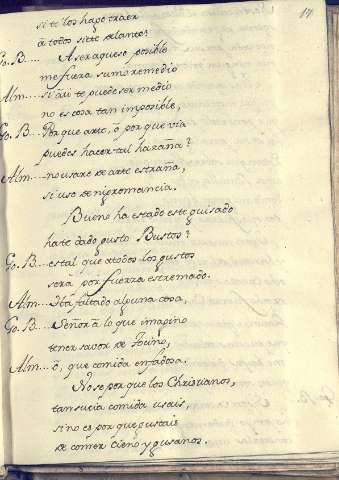 17
si te los hago traer
a todos siete delante?
Go. B.... A ser aqueso posible
me fuera sumo remedio
Alm.... si aū te puede ser medio
no es cosa tan imposible,
Go. B... Por que arte, ō por que via
puedes hacer tal hazaña?
Alm.... no usare de arte estraña,
si uso de nigromancia.
Bueno ha estado este guisado
hate dado gusto Bustos?
Go. B.... es tal que a todos los gustos
sera por fuerza estremado.
Alm.... Ha faltado alguna cosa,
Go. B.... Señor ā lo que imagino
tener savor de tocino,
Alm.... ō, que comida enfadosa.
No se por que los Christianos,
tan sucia comida usais,
si no es por que gustais
de comer cieno y gusanos.